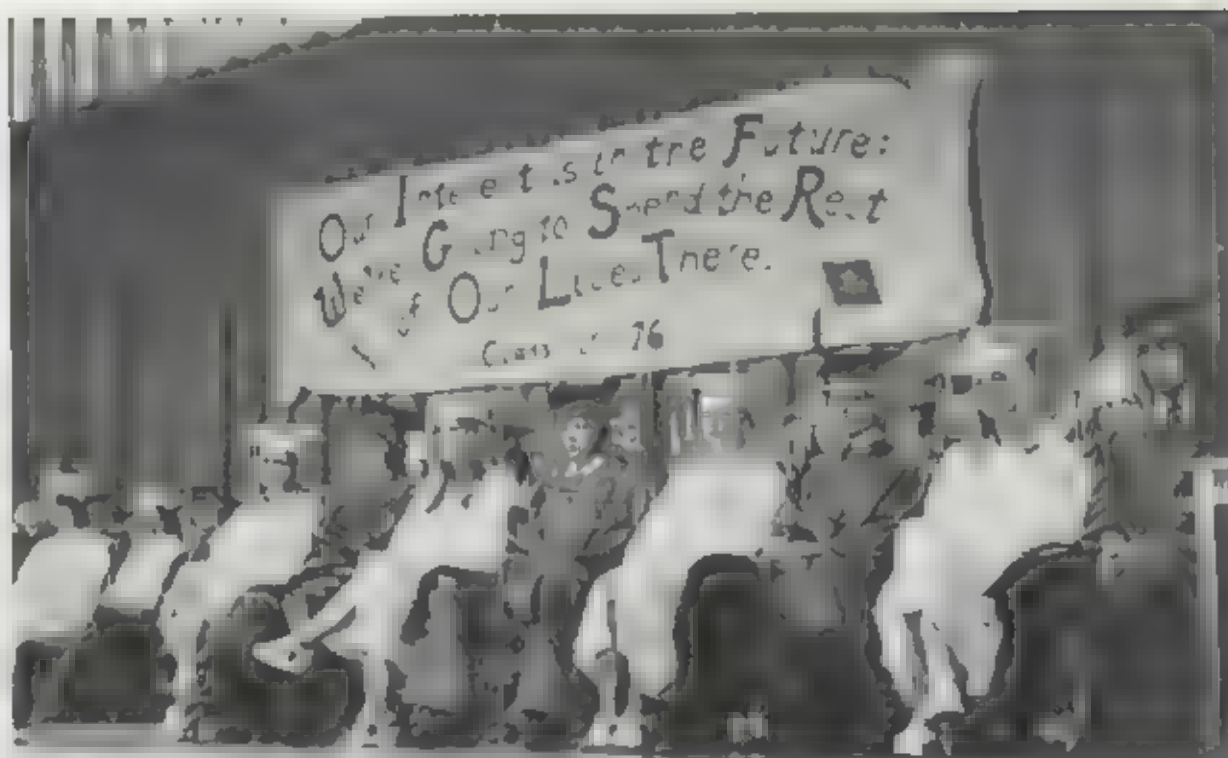 Our Interest is in the Future:
We're Going to Spend the Rest
of Our Lives There.
Class of 76